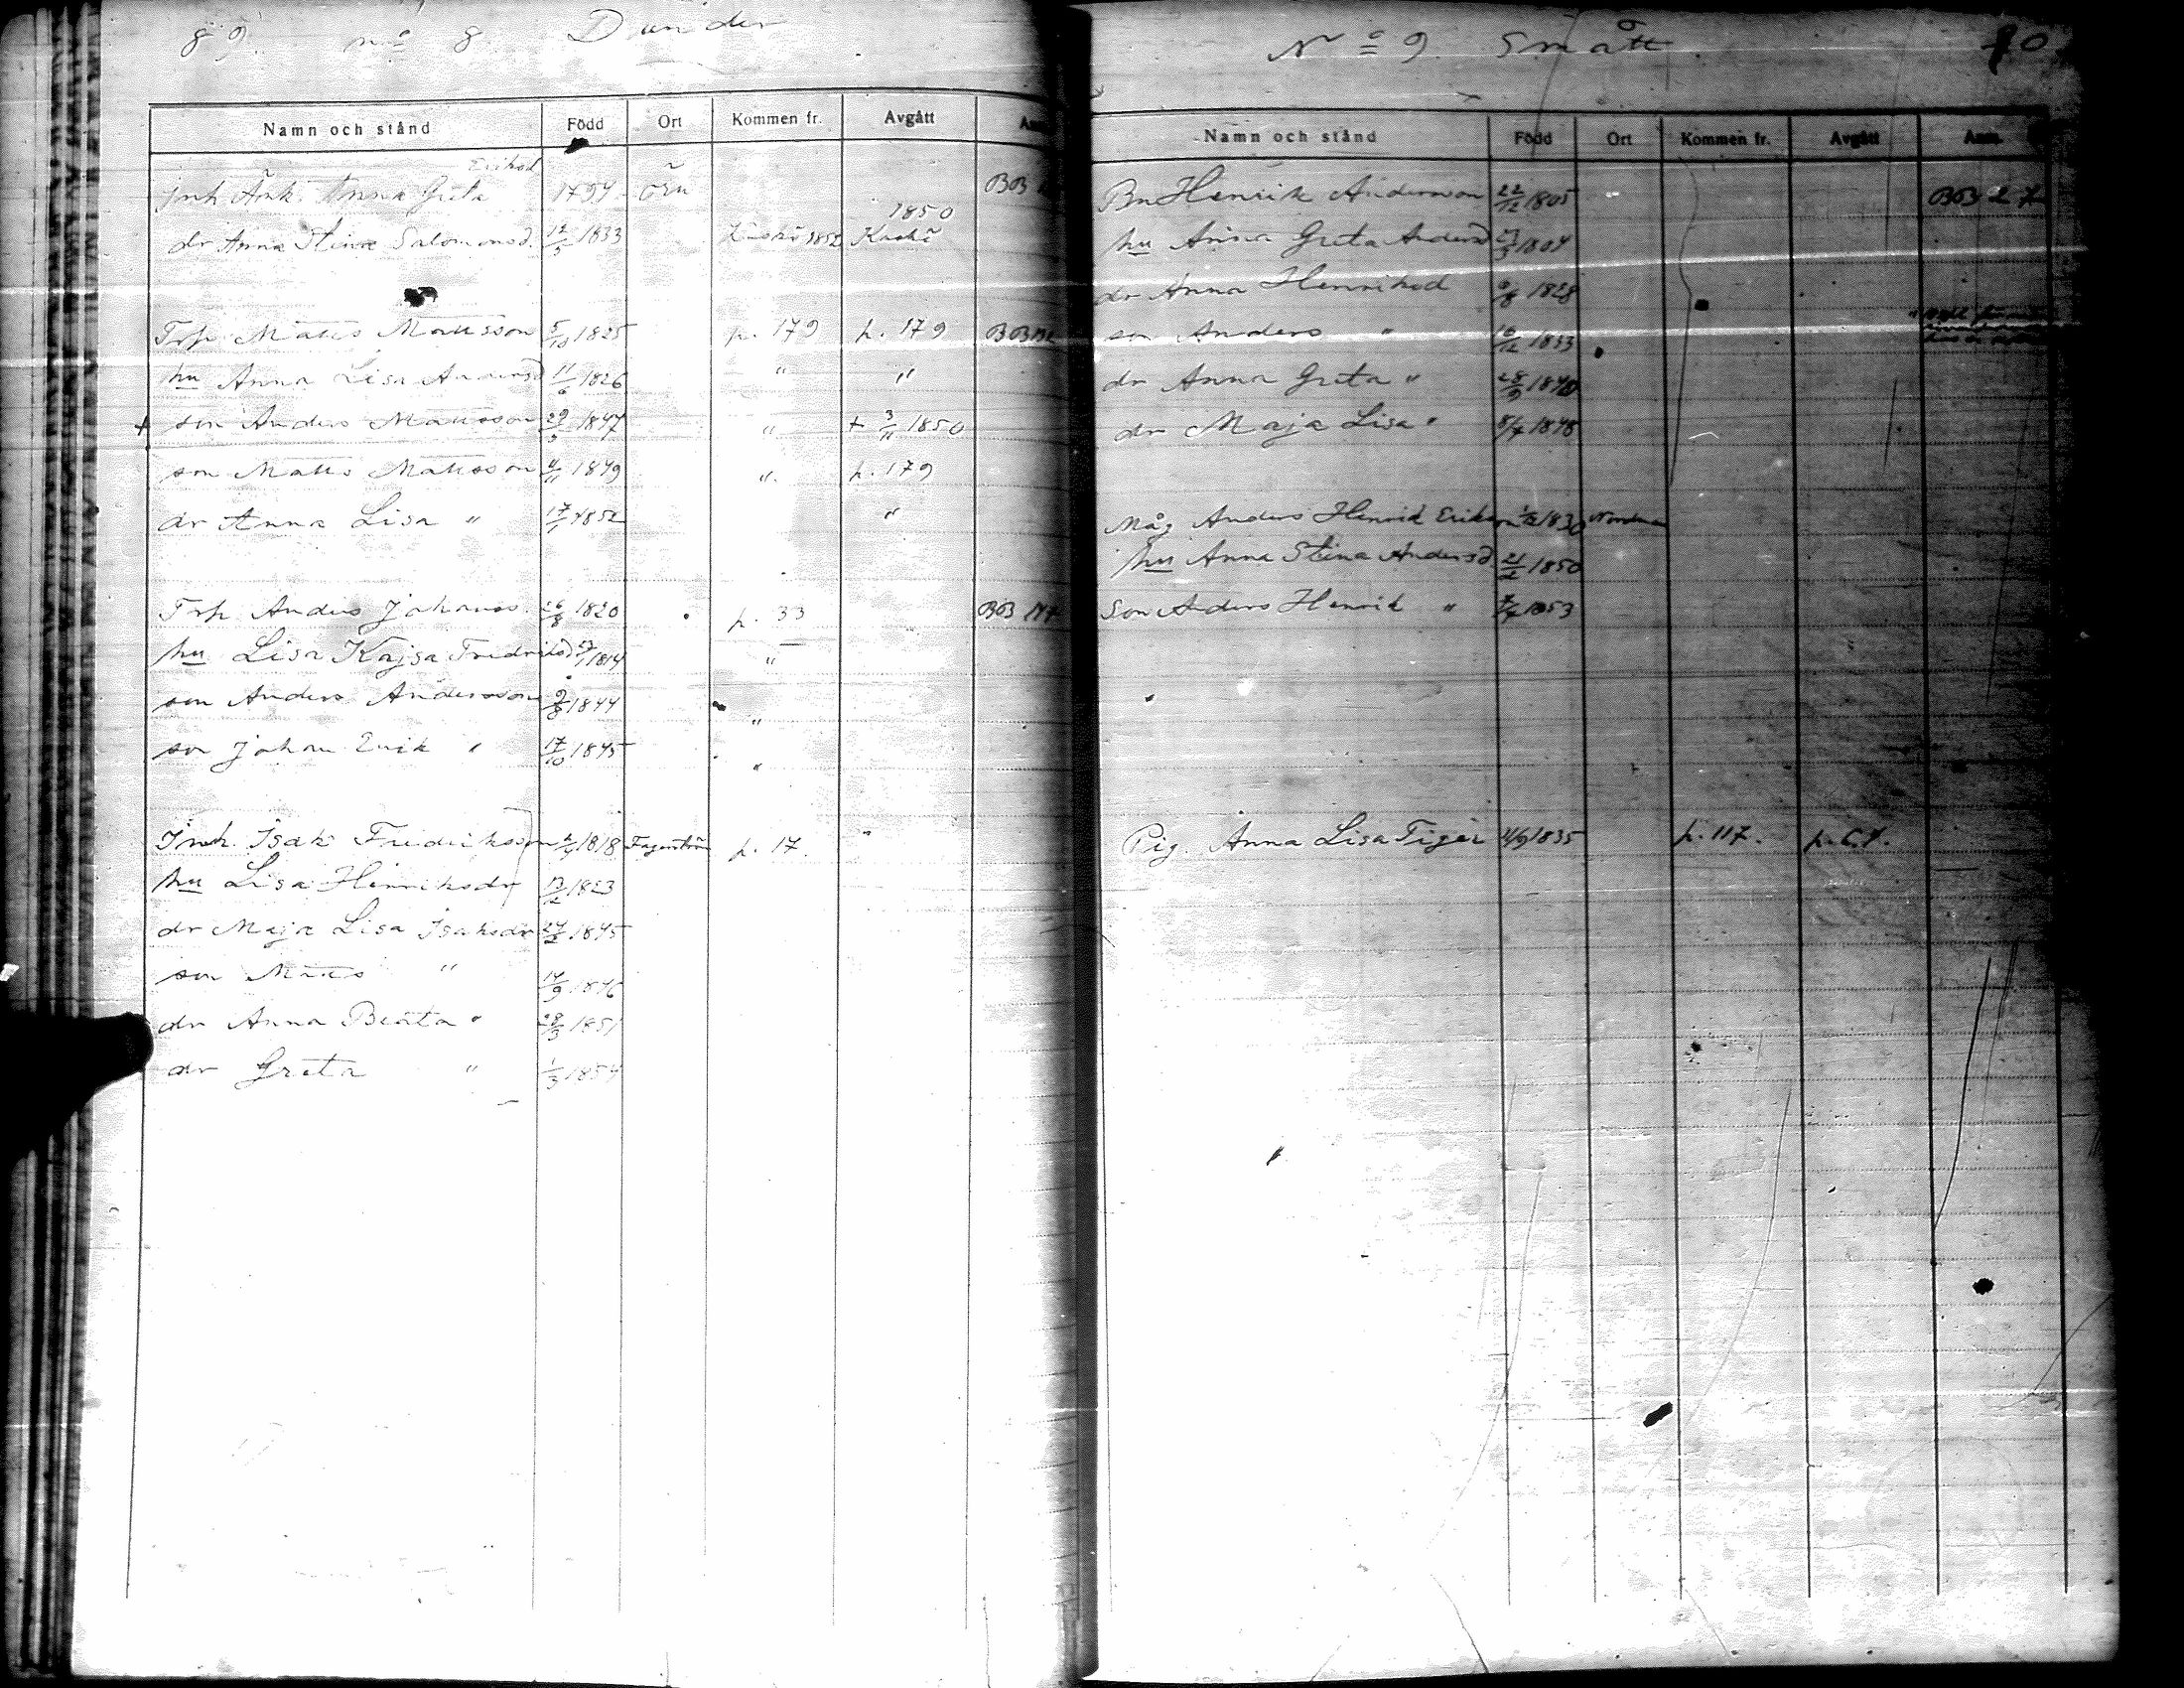 89 no 8 Dunder
Namn och stånd Född Ort Kommen fr. Avgått
Eriksd
Inh Änk. Anna Greta 1794 Öru BB
1850
dr Anna Stina Salomonsd. 12/5 1833 Kaskö 1852 Kaskö
Trp. Matts Mattsson 5/10 1825 p. 179 p. 179
hu Anna Lisa Andersd 11/6 1826 " "
+ son Anders Mattsson 29/3 1847 " + 3/11 1850
son Matts Mattsson 4/11 1849 " p. 179
dr Anna Lisa " 17/1 1852 "
Trp Anders Johanss. 26/8 1820 p. 33 BB
hu Lisa Kajsa Fredriksd 1814 "
son Anders Andersson 9/8 1844 "
son Johan Erik " 17/10 1845 "
Inh. Isak Fredriksson 1818 Fagerström p. 17
hu Lisa Henriksdr 1823
dr Maja Lisa Isaksdr 24/2 1845
son Matts " 14/9 1846
dr Anna Beata " 28/3 1851
dr Greta " 1/3 1854
No 9 Smått 90
Namn och stånd Född Ort Kommen fr. Avgått Anm.
Bn Henrik Andersson 22/12 1805 BB 27
hu Anna Greta Andersd 1804
dr Anna Henriksd 1828
son Anders " 16/12 1833
dr Anna Greta " 28/9 1840
dr Maja Lisa " 8/7 1848
Måg Anders Henrik Eriksson 1830
hu Anna Stina Andersd 21/2 1850
Son Anders Henrik " 1853
Pig. Anna Lisa Tiger 11/9 1835 p. 117.